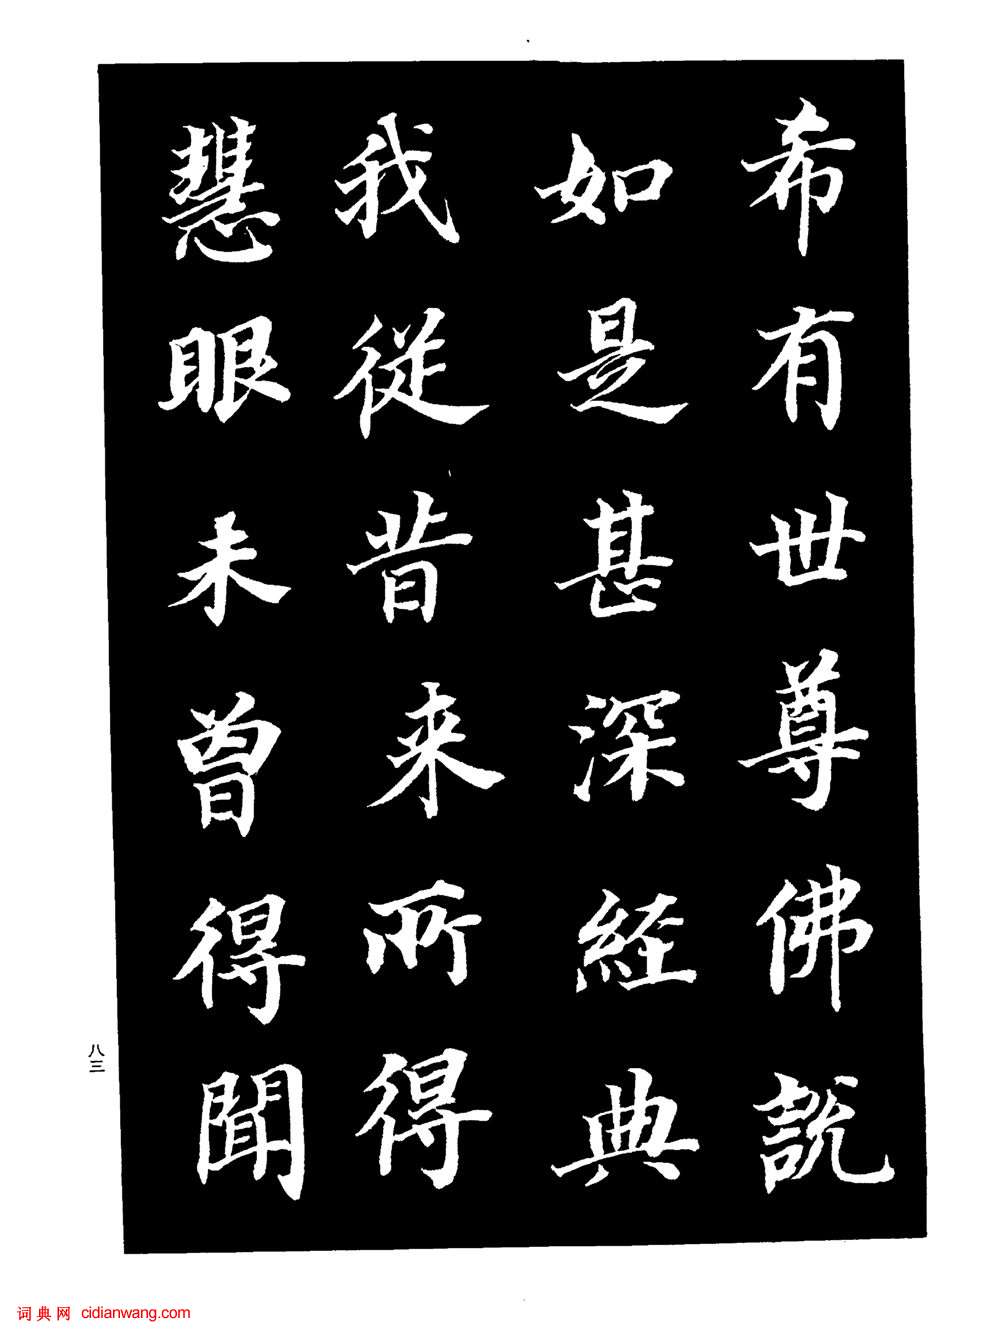 希有世尊佛說
如是甚深經典
我從昔来所得
慧眼未曾得聞
八三
词典网 cidianwang.com